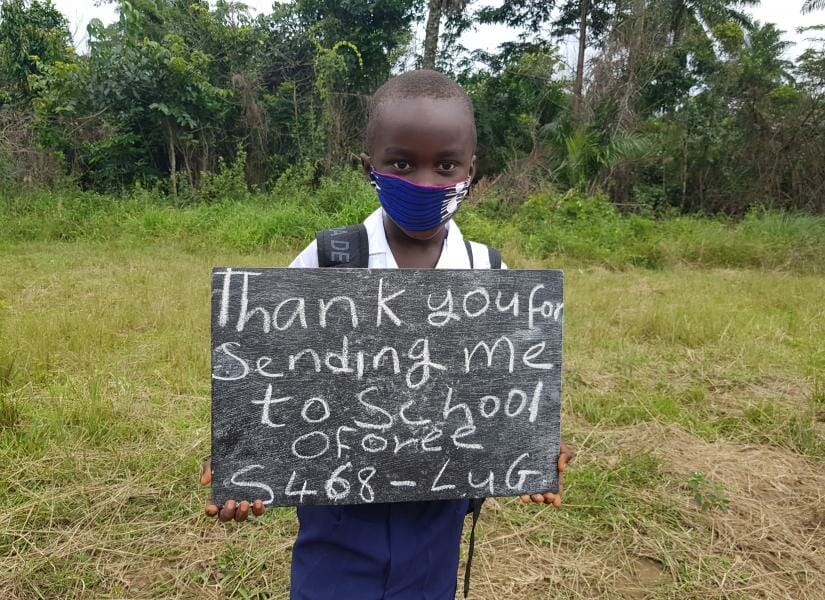 A DE
Thank you for
Sending me
to School
Oforee
S468-LuG